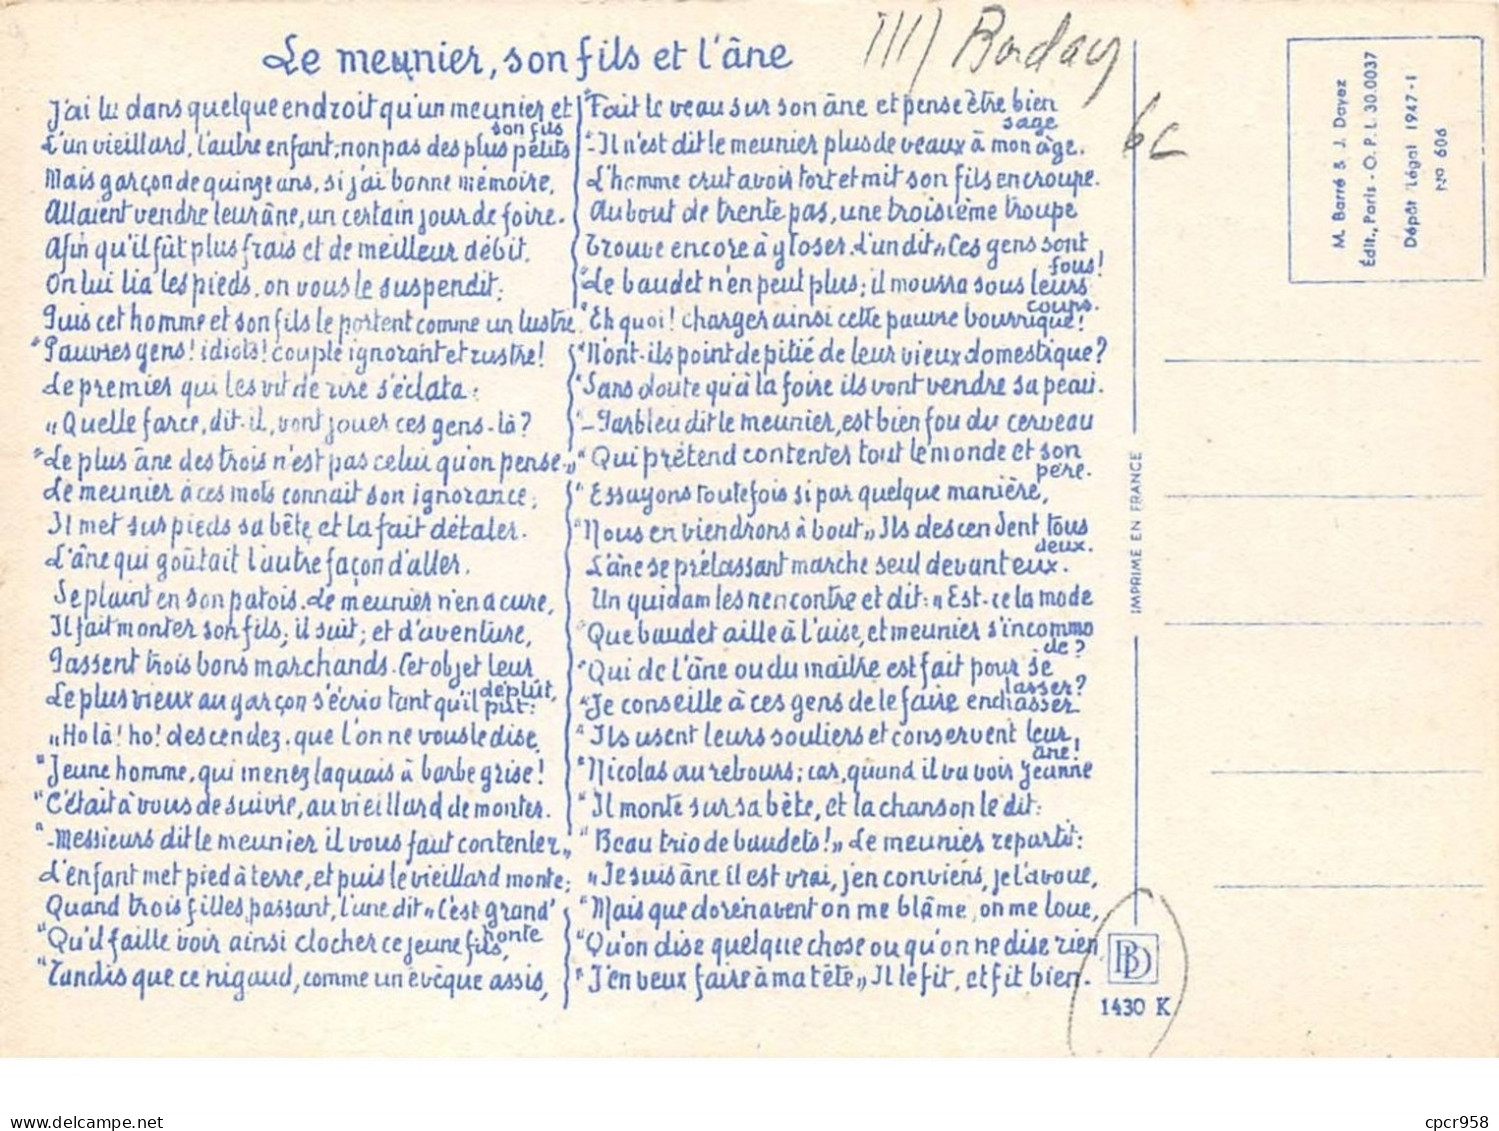 Le meunier, son fils et l'âne
J'ai lu dans quelque endroit qu'un meunier et
son fils
L'un vieillard, l'autre enfant, non pas des plus petits
Mais garçon de quinze ans, si j'ai bonne mémoire,
Allaient vendre leur âne, un certain jour de foire.
Afin qu'il fût plus frais et de meilleur débit,
On lui lia les pieds, on vous le suspendit;
Puis cet homme et son fils le portent comme un lustre.
"Pauvres gens! idiots! couple ignorant et rustre!
Le premier qui les vit de rire s'éclata:
"Quelle farce, dit-il, vont jouer ces gens-là?
"Le plus âne des trois n'est pas celui qu'on pense."
Le meunier à ces mots connait son ignorance;
Il met sus pieds sa bête et la fait détaler.
L'âne qui goûtait l'autre façon d'aller,
Se plaint en son patois. Le meunier n'en a cure,
Il fait monter son fils, il suit; et d'aventure,
Passent trois bons marchands. Cet objet leur
déplût,
Le plus vieux au garçon s'écria tant qu'il put:
"Ho là! ho! descendez, que l'on ne vous le dise,
"Jeune homme, qui menez laquais à barbe grise!
"C'était à vous de suivre, au vieillard de monter.
"-Messieurs dit le meunier il vous faut contenter"
L'enfant met pied à terre, et puis le vieillard monte;
Quand trois filles passant, l'une dit "C'est grand'
honte
"Qu'il faille voir ainsi clocher ce jeune fils,
"Tandis que ce nigaud, comme un évêque assis,
"Fait le veau sur son âne et pense être bien
sage
"-Il n'est dit le meunier plus de veaux à mon âge.
L'homme crut avoir tort et mit son fils en croupe.
Au bout de trente pas, une troisième troupe
Trouve encore à gloser. L'un dit "Ces gens sont
fous!
"Le baudet n'en peut plus; il mourra sous leurs
coups.
"Eh quoi! charger ainsi cette pauvre bourrique!
"N'ont-ils point de pitié de leur vieux domestique?
"Sans doute qu'à la foire ils vont vendre sa peau.
"-Parbleu dit le meunier, est bien fou du cerveau
"Qui prétend contenter tout le monde et son
père.
"Essayons toutefois si par quelque manière,
"Nous en viendrons à bout" Ils descendent tous
deux.
L'âne se prélassant marche seul devant eux.
Un quidam les rencontre et dit: "Est-ce la mode
"Que baudet aille à l'aise, et meunier s'incommo
de?
"Qui de l'âne ou du maître est fait pour se
lasser?
"Je conseille à ces gens de le faire enchasser
"Ils usent leurs souliers et conservent leur
âne!
"Nicolas au rebours; car, quand il va voir Jeanne
"Il monte sur sa bête, et la chanson le dit:
"Beau trio de baudets!" Le meunier repartit:
"Je suis âne il est vrai, j'en conviens, je l'avoue,
"Mais que dorénavent on me blâme, on me loue,
"Qu'on dise quelque chose ou qu'on ne dise rien
"J'en veux faire à ma tête" Il le fit, et fit bien.
6c
IMPRIME EN FRANCE
BD
1430 K
M. Barré & J. Dayez
Édit., Paris - O. P. I. 30.0037
Dépôt légal 1947-I
No 606
cpcr958